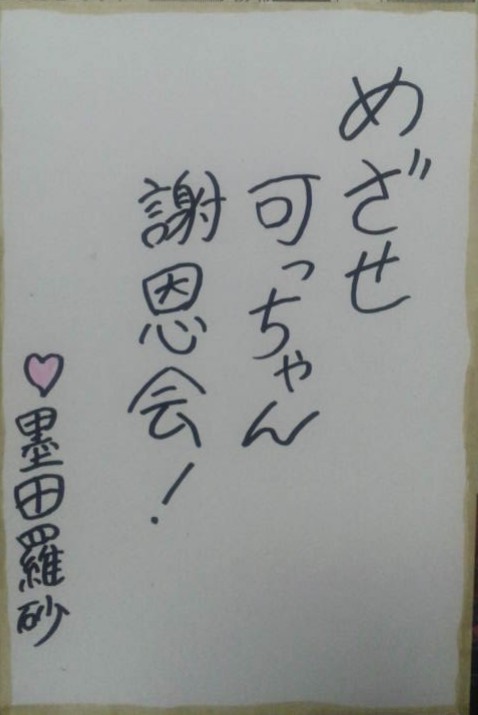 めざせ
可っちゃん
謝恩会!
♡墨田羅砂